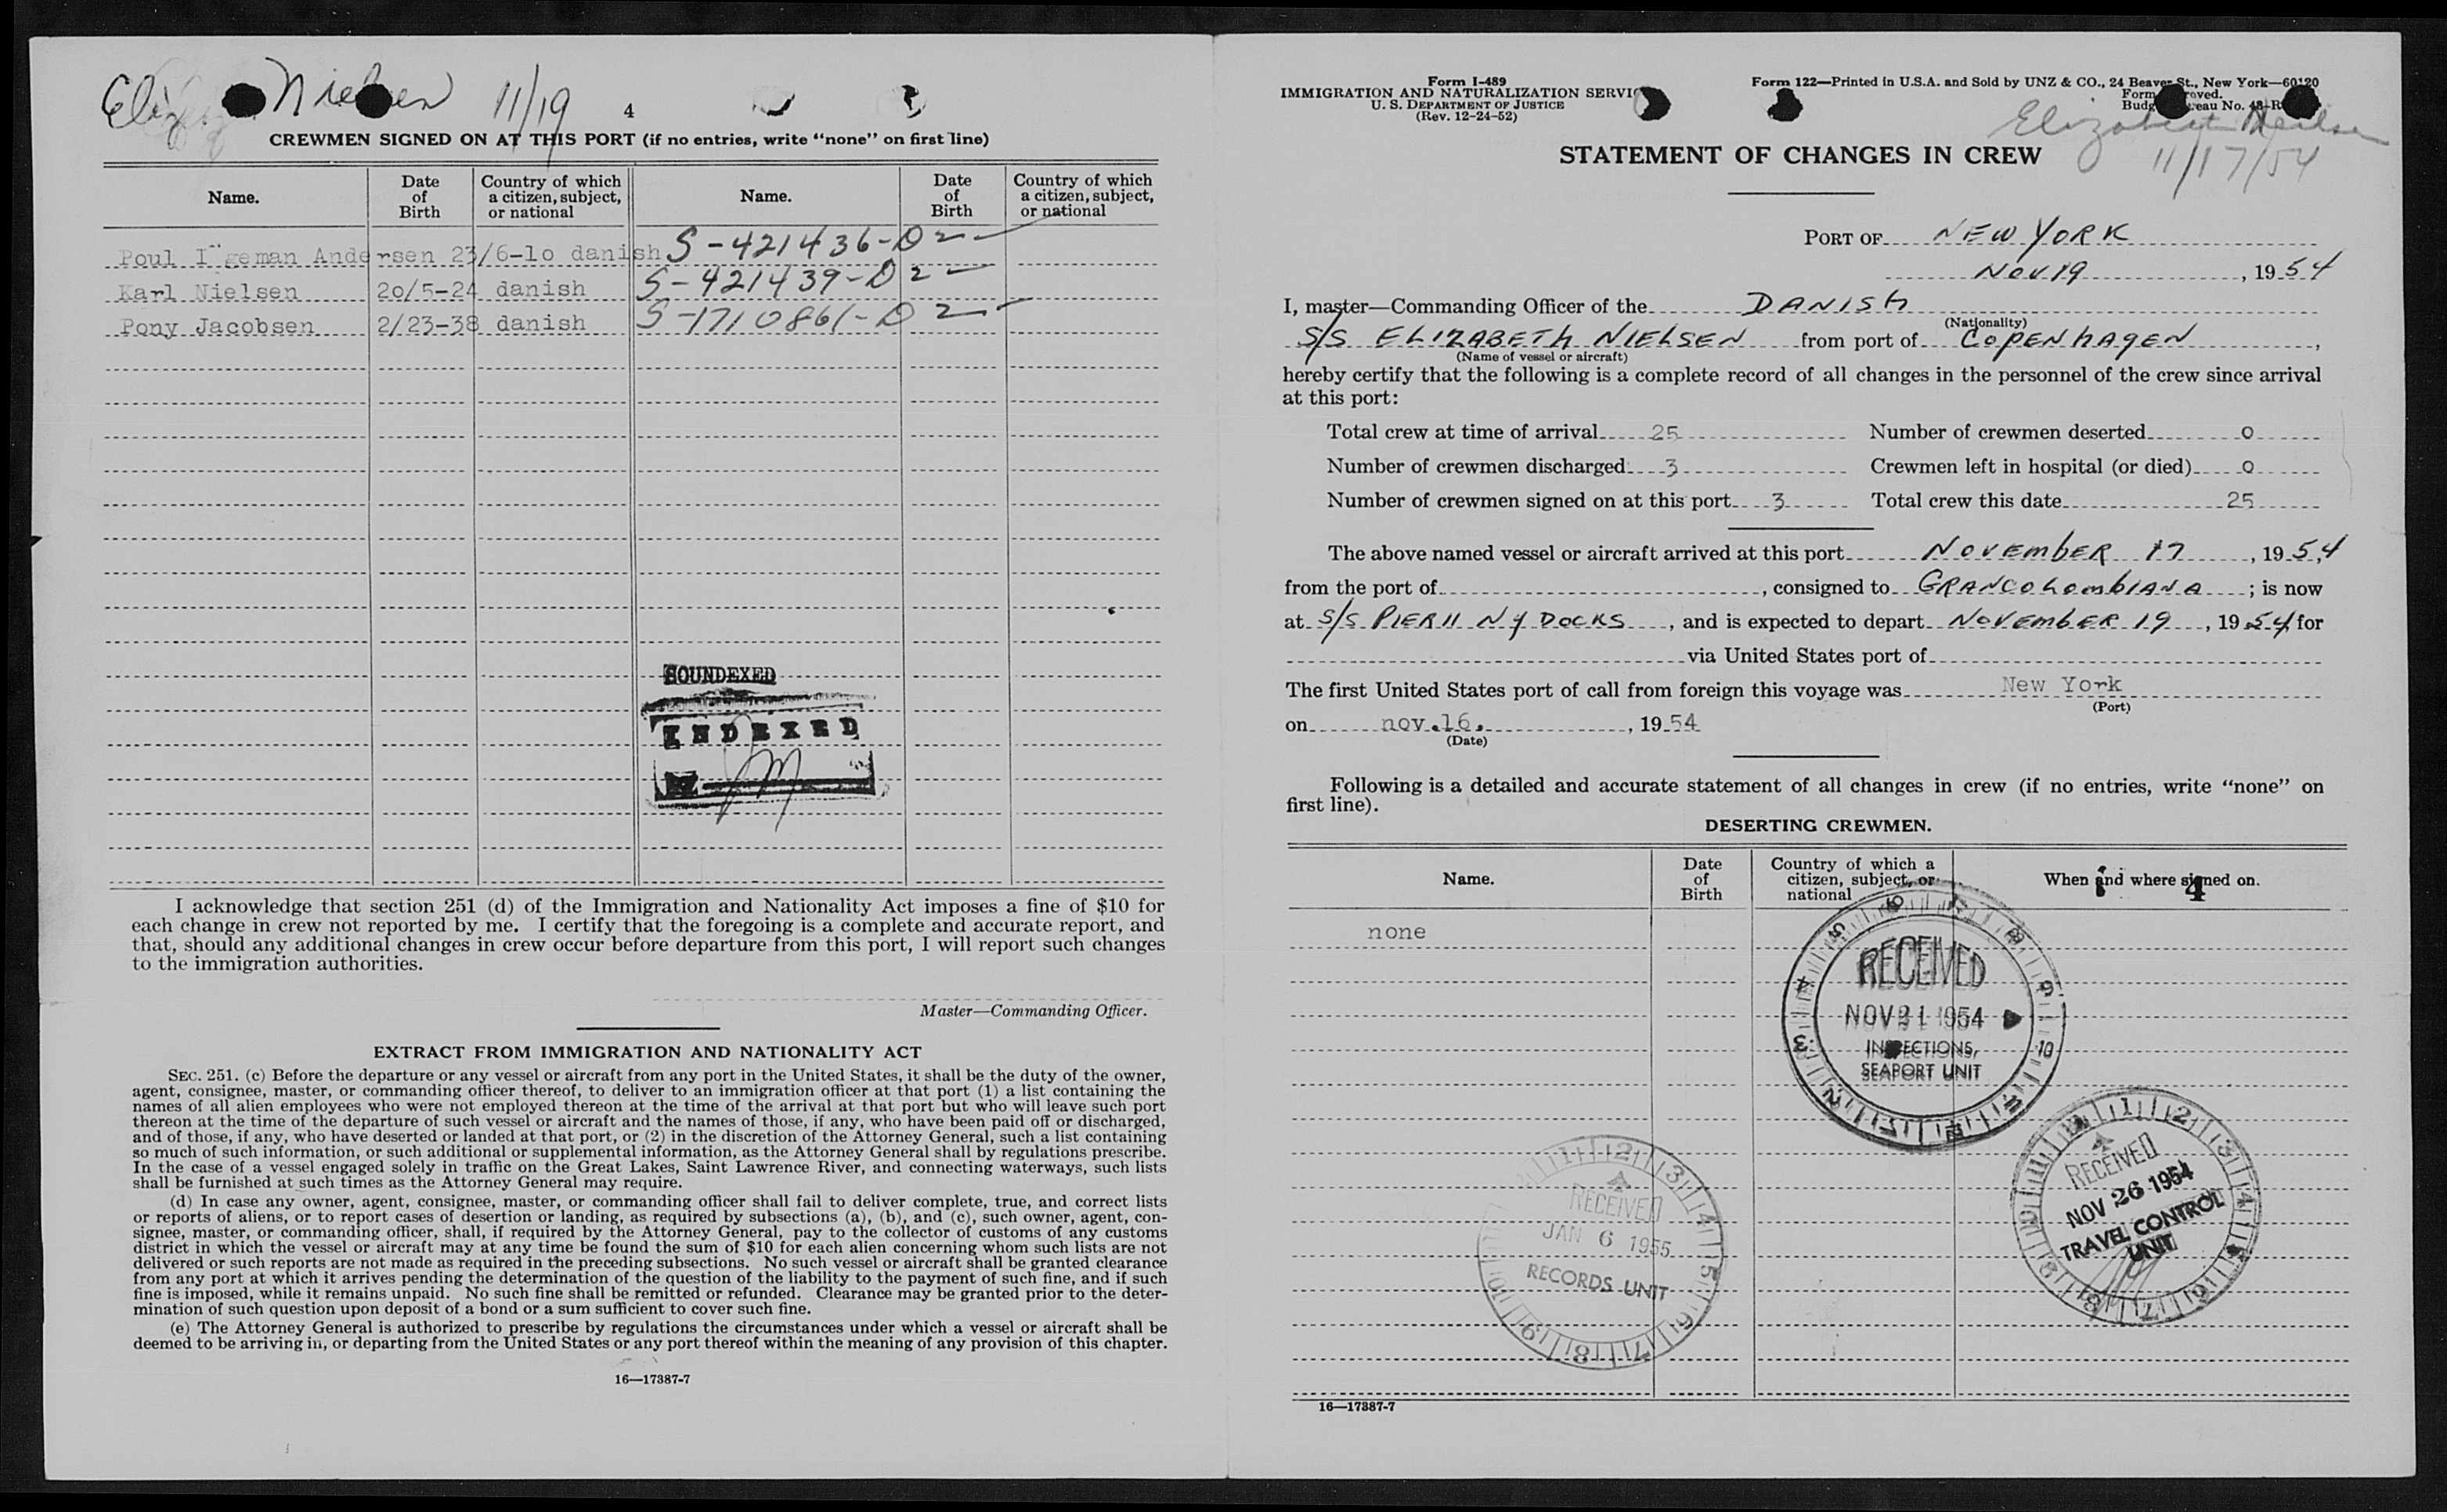 Eliz. Nielsen 11/19
4
CREWMEN SIGNED ON AT THIS PORT (if no entries, write "none" on first line)
Name. Date of Birth Country of which a citizen, subject, or national Name. Date of Birth Country of which a citizen, subject, or national
Poul I geman Andersen 23/6-10 danish S-421436-D 2
Karl Nielsen 20/5-24 danish S-421439-D 2
Pony Jacobsen 2/23-38 danish S-1710861-D 2
SOUNDEXED
INDEXED
I acknowledge that section 251 (d) of the Immigration and Nationality Act imposes a fine of $10 for
each change in crew not reported by me. I certify that the foregoing is a complete and accurate report, and
that, should any additional changes in crew occur before departure from this port, I will report such changes
to the immigration authorities.
Master—Commanding Officer.
EXTRACT FROM IMMIGRATION AND NATIONALITY ACT
SEC. 251. (c) Before the departure or any vessel or aircraft from any port in the United States, it shall be the duty of the owner,
agent, consignee, master, or commanding officer thereof, to deliver to an immigration officer at that port (1) a list containing the
names of all alien employees who were not employed thereon at the time of the arrival at that port but who will leave such port
thereon at the time of the departure of such vessel or aircraft and the names of those, if any, who have been paid off or discharged,
and of those, if any, who have deserted or landed at that port, or (2) in the discretion of the Attorney General, such a list containing
so much of such information, or such additional or supplemental information, as the Attorney General shall by regulations prescribe.
In the case of a vessel engaged solely in traffic on the Great Lakes, Saint Lawrence River, and connecting waterways, such lists
shall be furnished at such times as the Attorney General may require.
(d) In case any owner, agent, consignee, master, or commanding officer shall fail to deliver complete, true, and correct lists
or reports of aliens, or to report cases of desertion or landing, as required by subsections (a), (b), and (c), such owner, agent, con-
signee, master, or commanding officer, shall, if required by the Attorney General, pay to the collector of customs of any customs
district in which the vessel or aircraft may at any time be found the sum of $10 for each alien concerning whom such lists are not
delivered or such reports are not made as required in the preceding subsections. No such vessel or aircraft shall be granted clearance
from any port at which it arrives pending the determination of the question of the liability to the payment of such fine, and if such
fine is imposed, while it remains unpaid. No such fine shall be remitted or refunded. Clearance may be granted prior to the deter-
mination of such question upon deposit of a bond or a sum sufficient to cover such fine.
(e) The Attorney General is authorized to prescribe by regulations the circumstances under which a vessel or aircraft shall be
deemed to be arriving in, or departing from the United States or any port thereof within the meaning of any provision of this chapter.
16—17387-7
Form I-489
IMMIGRATION AND NATURALIZATION SERVIC
U. S. DEPARTMENT OF JUSTICE
(Rev. 12-24-52)
Form 122—Printed in U.S.A. and Sold by UNZ & CO., 24 Beaver St., New York—60120
Form roved.
Budg eau No. 43-R
Elizabeth Neilsen
11/17/54
STATEMENT OF CHANGES IN CREW
PORT OF NEW YORK
NOV 19, 1954
I, master—Commanding Officer of the DANISH
(Nationality)
S/S ELIZABETH NIELSEN from port of COPENHAGEN,
(Name of vessel or aircraft)
hereby certify that the following is a complete record of all changes in the personnel of the crew since arrival
at this port:
Total crew at time of arrival 25 Number of crewmen deserted 0
Number of crewmen discharged 3 Crewmen left in hospital (or died) 0
Number of crewmen signed on at this port 3 Total crew this date 25
The above named vessel or aircraft arrived at this port NOVEMBER 17, 1954
from the port of , consigned to GRANCOLOMBIANA; is now
at S/S PIER 11 NY DOCKS, and is expected to depart NOVEMBER 19, 1954 for
via United States port of
The first United States port of call from foreign this voyage was New York
(Port)
on nov.16., 1954
(Date)
Following is a detailed and accurate statement of all changes in crew (if no entries, write "none" on
first line).
DESERTING CREWMEN.
Name. Date of Birth Country of which a citizen, subject, or national When and where signed on.
4
none
RECEIVED
NOV 21 1954
INSPECTIONS,
SEAPORT UNIT
RECEIVED
NOV 26 1954
TRAVEL CONTROL
UNIT
RECEIVED
JAN 6 1955
RECORDS UNIT
16—17387-7